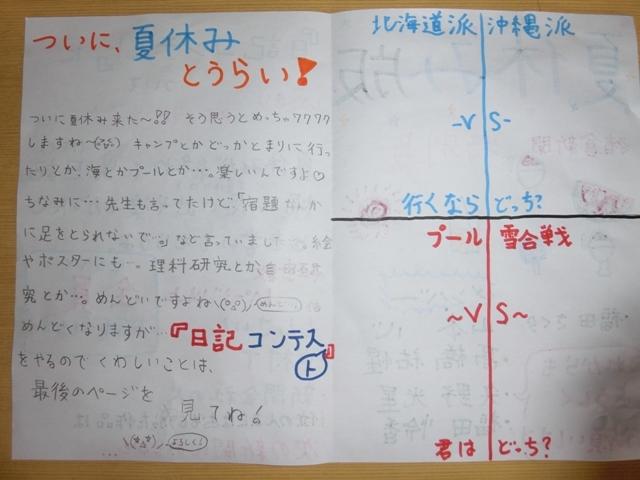 ついに、夏休み
とうらい!
ついに夏休み来た〜!! そう思うとめっちゃワクワク
しますね〜 キャンプとかどっかとまりに行っ
たりとか、海とかプールとか…。楽しいんですよ♡
ちなみに…先生も言ってたけど、「宿題なんか
に足をとられないで…」など言っていました。絵
やポスターにも…。理科研究とか自
究とか…。めんどいですよね めんど…
めんどくなりますが…『日記コンテスト』
をやるので くわしいことは、
最後のページを
見てね!
よろしく!
北海道派 沖縄派
-V S-
行くなら どっち?
プール 雪合戦
~V S~
君は どっち?